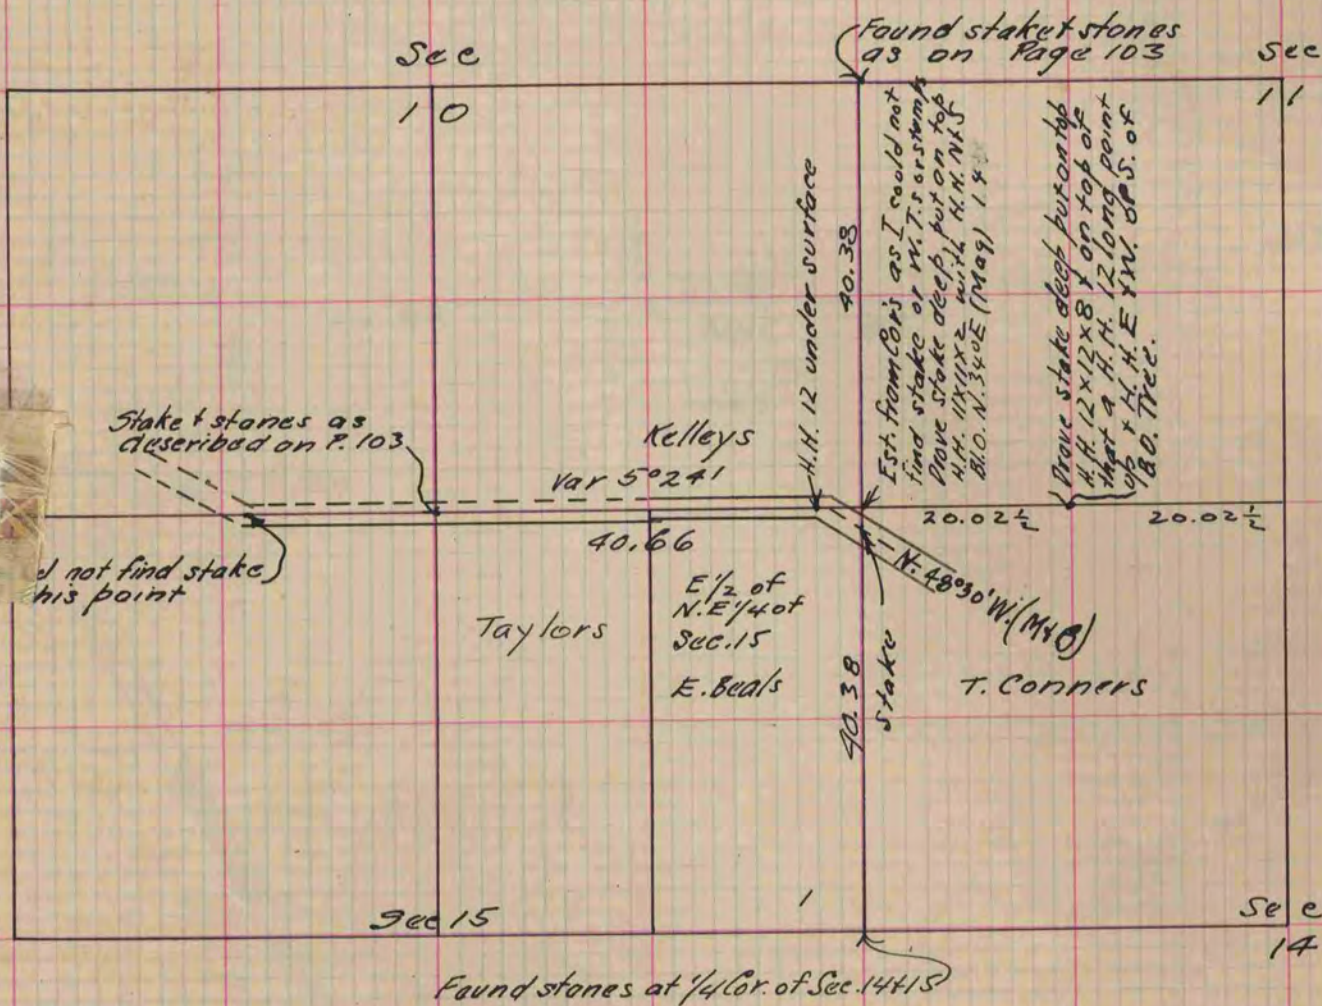 Found stake & stones
as on Page 103
Sec
10
Sec
11
H.H. 12 under surface
40.38
Est. from Cor's as I could not
find stake or W.T.s or stump
Drove stake deep put on top
H.H. 11x11x2 with H.H. N&S
B.O. N.34°E (Mag) 1.4
Drove stake deep put on top
H.H. 12x12x8 & on top of
that a H.H. 12 long point
up & H.H. E & W. of S. of
B.O. Tree.
Stake & stones as
described on P. 103
Kelleys
Var 5°24'
20.02½
20.02½
40.66
N. 48°30' W. (M&B)
d not find stake
his point
E ½ of
N.E ¼ of
Sec. 15
E. Beals
Taylors
40.38
Stake
T. Conners
Sec 15
1
Sec
14
Found stones at ¼ Cor. of Sec. 14 & 15